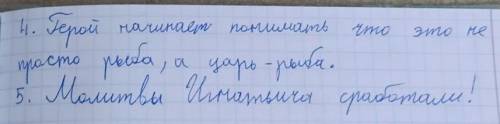 4. Герой начинает понимать что это не
просто рыба, а царь-рыба.
5. Молитвы Игнатьича сработали!